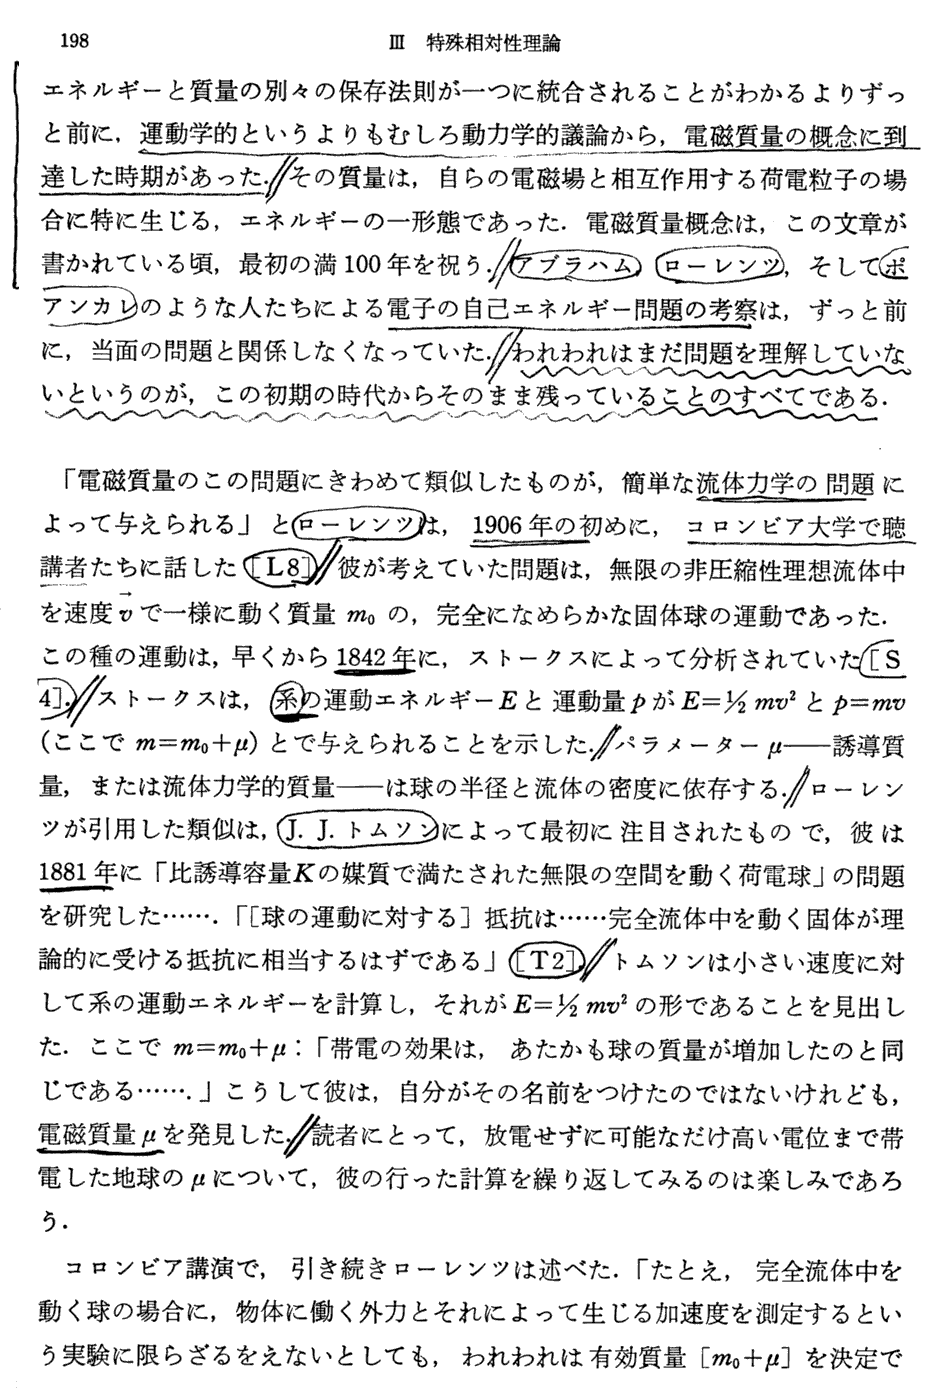 198
III 特殊相対性理論
エネルギーと質量の別々の保存法則が一つに統合されることがわかるよりずっ
と前に，運動学的というよりもむしろ動力学的議論から，電磁質量の概念に到
達した時期があった．その質量は，自らの電磁場と相互作用する荷電粒子の場
合に特に生じる，エネルギーの一形態であった．電磁質量概念は，この文章が
書かれている頃，最初の満100年を祝う．アブラハム，ローレンツ，そしてポ
アンカレのような人たちによる電子の自己エネルギー問題の考察は，ずっと前
に，当面の問題と関係しなくなっていた．われわれはまだ問題を理解していな
いというのが，この初期の時代からそのまま残っていることのすべてである．
「電磁質量のこの問題にきわめて類似したものが，簡単な流体力学の問題に
よって与えられる」とローレンツは，1906年の初めに，コロンビア大学で聴
講者たちに話した［L8］．彼が考えていた問題は，無限の非圧縮性理想流体中
を速度 v⃗ で一様に動く質量 m₀ の，完全になめらかな固体球の運動であった．
この種の運動は，早くから1842年に，ストークスによって分析されていた［S
4］．ストークスは，系の運動エネルギーEと運動量pがE=½ mv²とp=mv
(ここで m=m₀+μ) とで与えられることを示した．パラメーター μ——誘導質
量，または流体力学的質量——は球の半径と流体の密度に依存する．ローレン
ツが引用した類似は，J. J. トムソンによって最初に注目されたもので，彼は
1881年に「比誘導容量Kの媒質で満たされた無限の空間を動く荷電球」の問題
を研究した……．「［球の運動に対する］抵抗は……完全流体中を動く固体が理
論的に受ける抵抗に相当するはずである」［T2］．トムソンは小さい速度に対
して系の運動エネルギーを計算し，それがE=½ mv²の形であることを見出し
た．ここで m=m₀+μ：「帯電の効果は，あたかも球の質量が増加したのと同
じである……．」こうして彼は，自分がその名前をつけたのではないけれども，
電磁質量μを発見した．読者にとって，放電せずに可能なだけ高い電位まで帯
電した地球のμについて，彼の行った計算を繰り返してみるのは楽しみであろ
う．
コロンビア講演で，引き続きローレンツは述べた．「たとえ，完全流体中を
動く球の場合に，物体に働く外力とそれによって生じる加速度を測定するとい
う実験に限らざるをえないとしても，われわれは有効質量［m₀+μ］を決定で